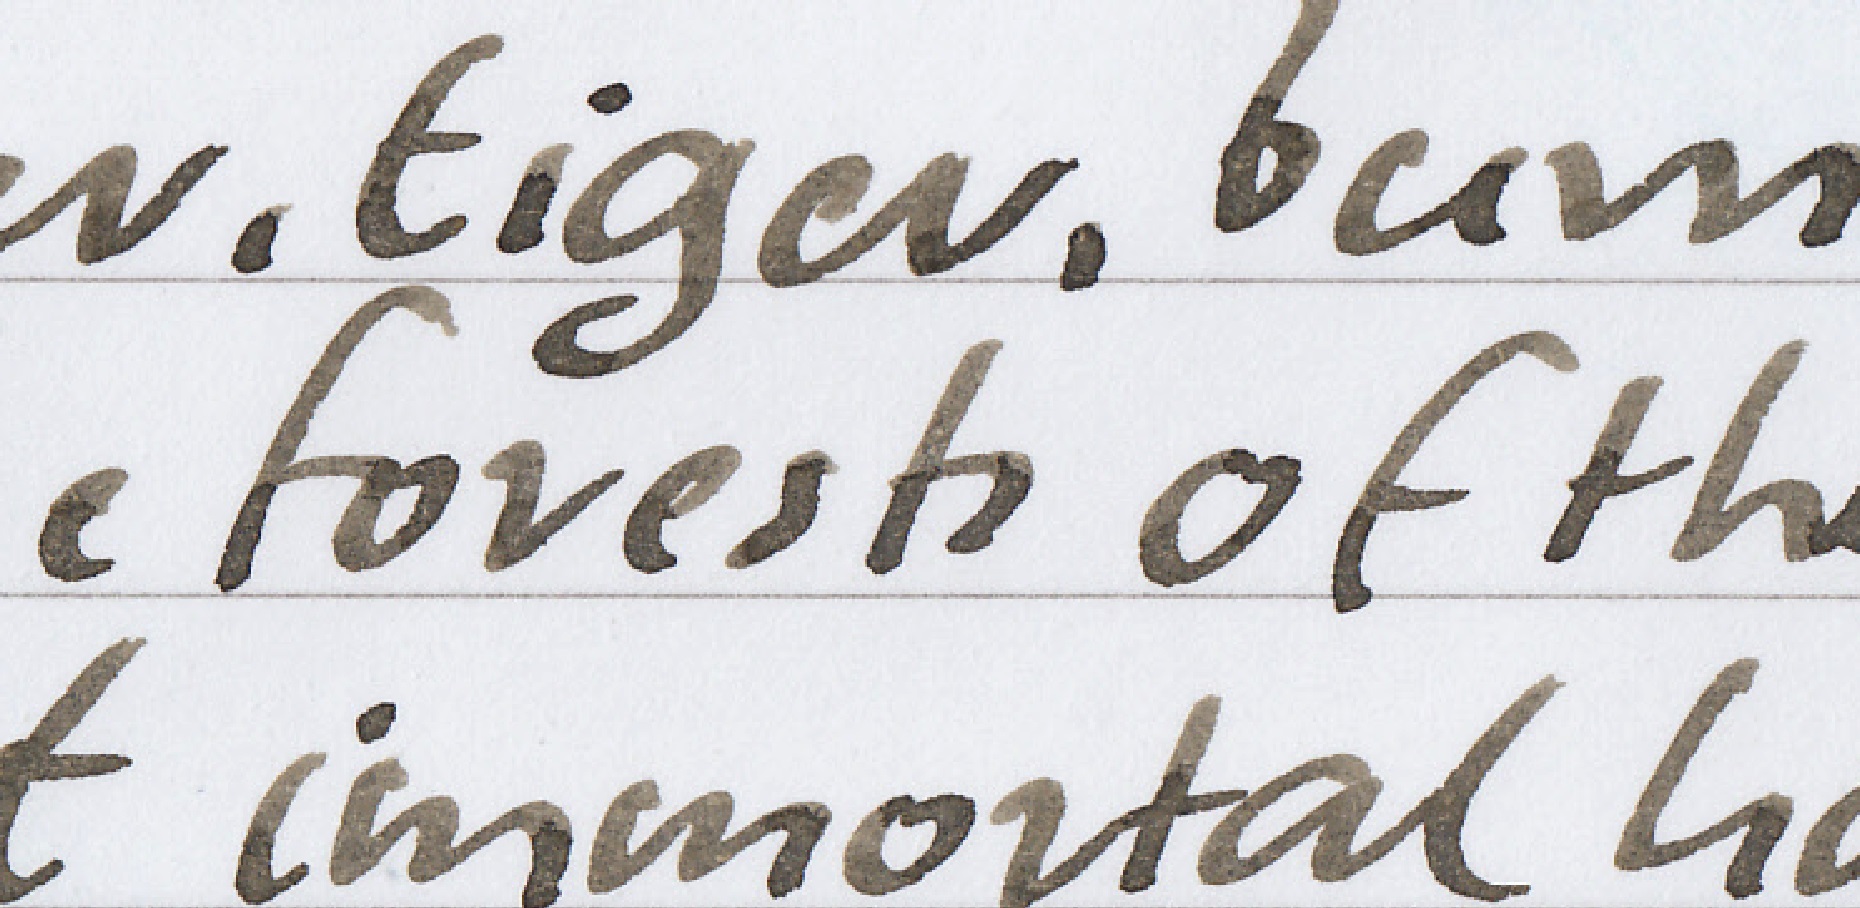 er. tiger. burn
e forests of the
t immortal ha